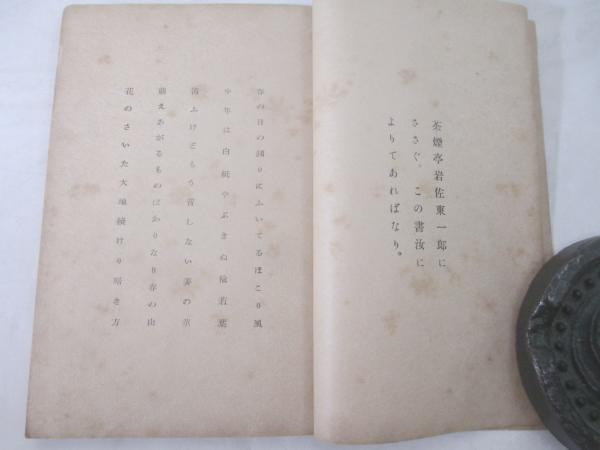 茶煙亭岩佐東一郎に
ささぐ。この書汝に
よりてあればなり。
春の日の踊りにふいてるほこり風
少年は白
笛ふけどもう音しない
萠えあがるものばかりなり春の山
花のさいた大地傾けり暗き方